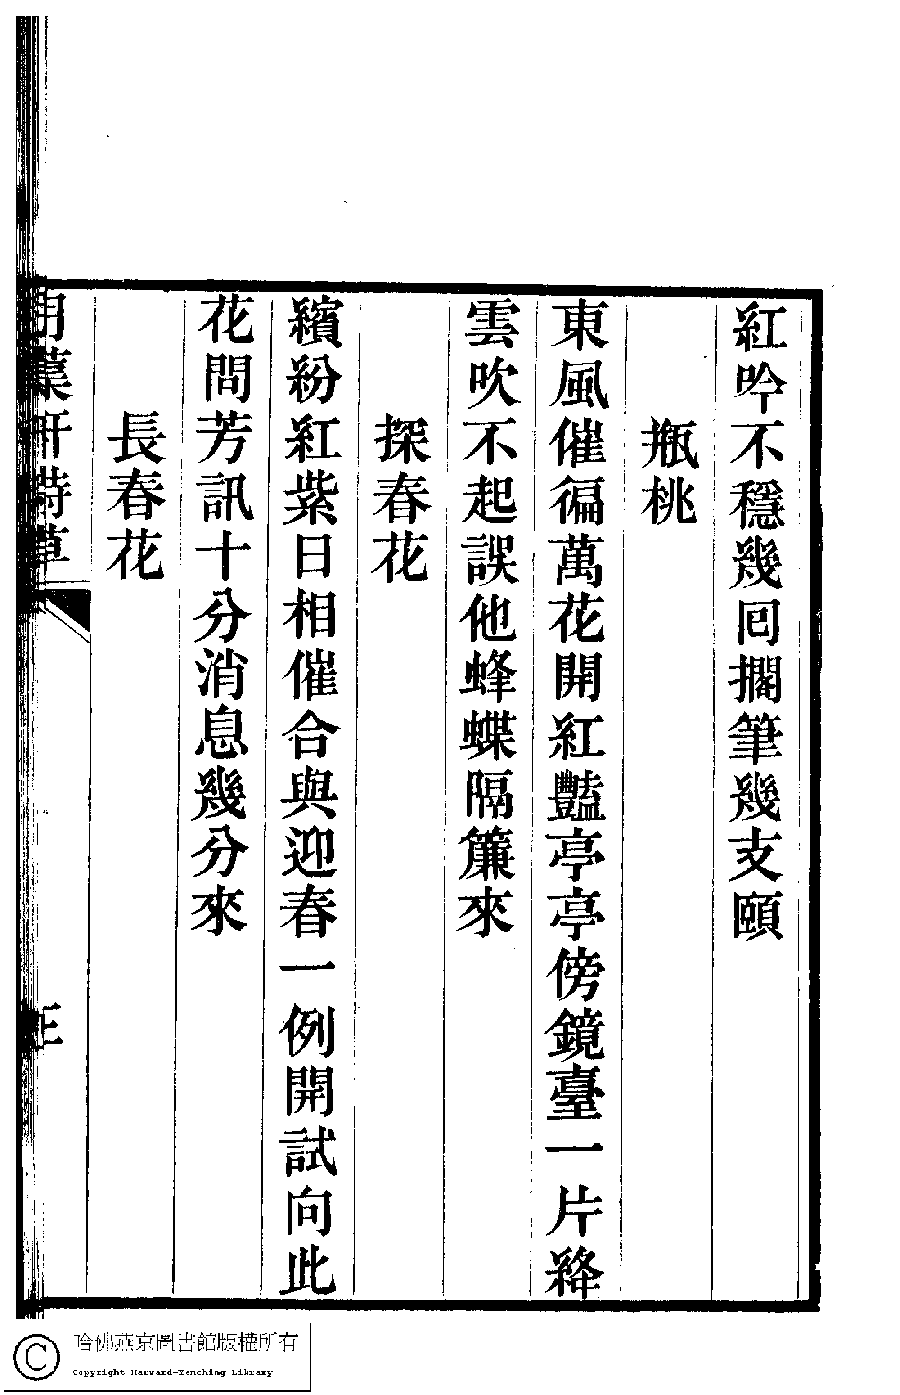 紅吟不穩幾囘擱筆幾支頤
瓶桃
東風催徧萬花開紅豔亭亭傍鏡臺一片絳
雲吹不起誤他蜂蝶隔簾來
探春花
繽紛紅紫日相催合與迎春一例開試向此
花問芳訊十分消息幾分來
長春花
軒詩草
哈佛燕京圖書館版權所有
Copyright Harvard-Yenching Library